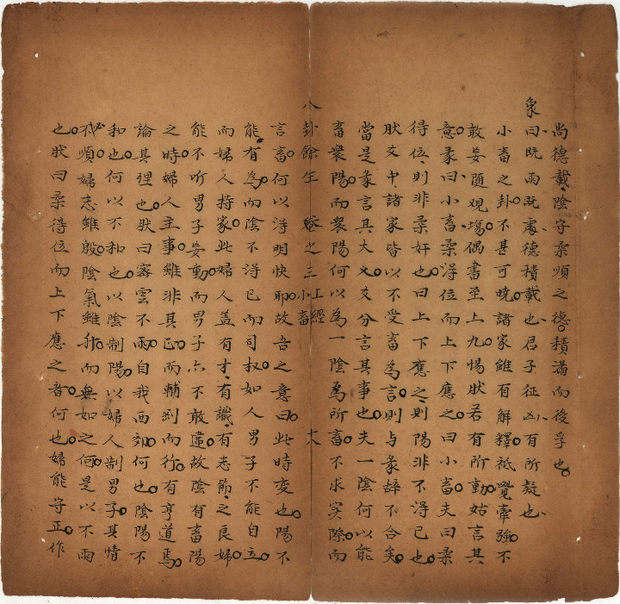 尚德載陰字柔順之德積滿而後孚也
象曰既雨既處德積載也君子征凶有所疑也
小畜之卦不甚可曉諸家雖有解釋祗覺牽強不
敢妄隨觀場偶書至上九惕狀若有所動姑言其
意彖曰小畜柔得位而上下應之曰小畜夫曰柔
得位則非柔奸也曰上下應之則陽非不得已也
狀爻中諸家皆以不受畜為言則与彖辭不合矣
當是彖言其大爻分言其事也夫一陰何以能
畜衆陽而衆陽何以為一陰為所畜不求害除而
八卦餘生 卷之三 上經 小畜 十六
言畜何以得明快耶故吾之意曰此時變也陽不
能有為而陰不得已而司权如人男子不能自立
而婦人持家此婦人盖有才有識有志節之良婦
能不听男子妄動而男子亦不敢違故陰有畜陽
之時婦人主事雖非其正所輔則而行有亨道焉
論其理也狀曰密雲不雨自我西郊何也陰陽不
和也何以不和也以陰制陽以婦人制男子其情
拂順婦志雖殷陰氣雖升而無如之何是以不雨
也狀曰柔得位而上下應之者何也婦能守正作